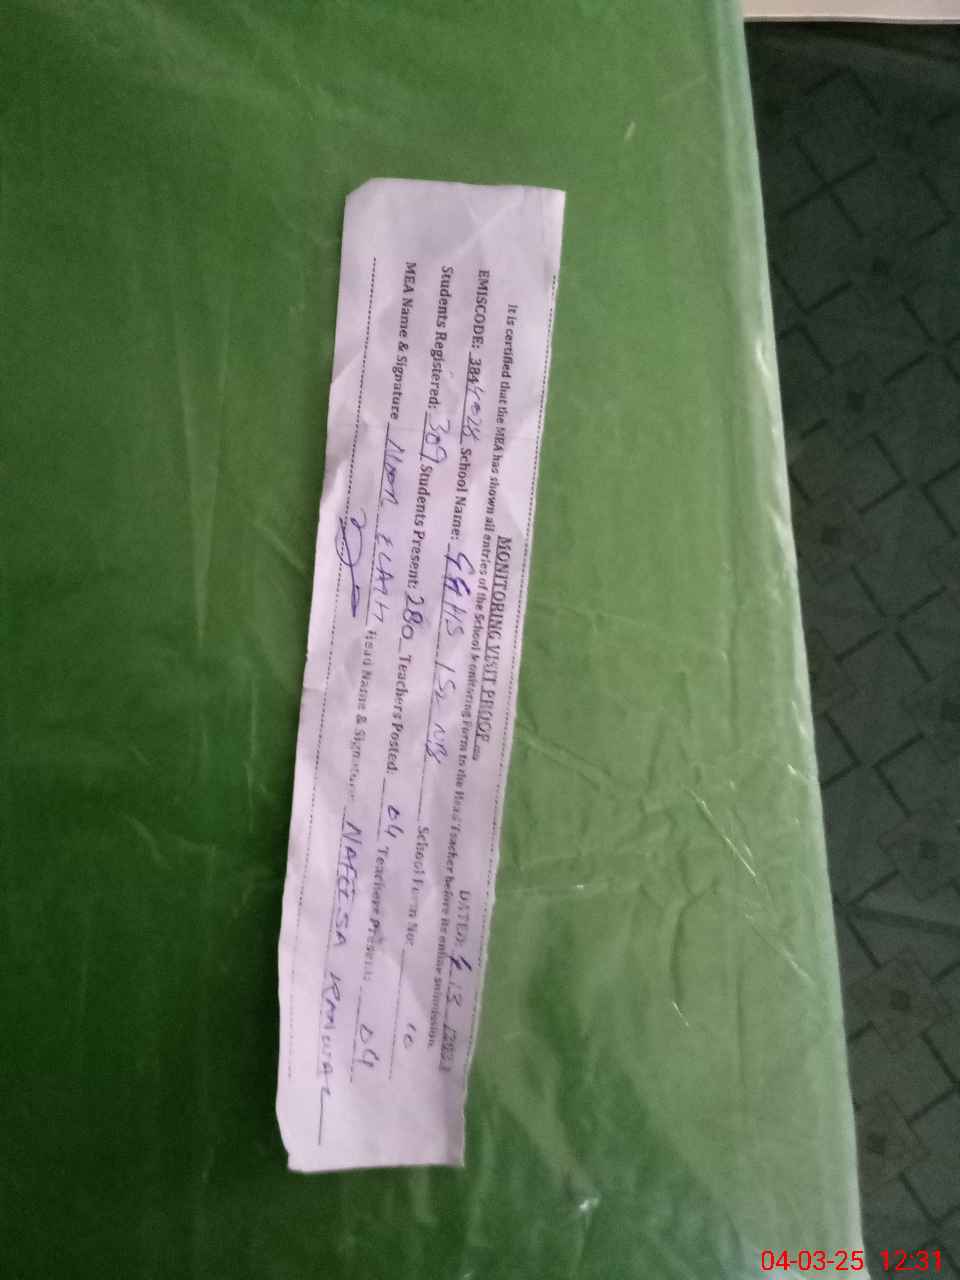 MONITORING VISIT PROOF
DATED: 4 13
It is certified that the MEA has shown all entries of the School Monitoring Form to the Head Teacher before its online submission.
EMISCODE: 3844028 School Name: GGHS 152 NB School Form No: 10
Students Registered: 309 Students Present: 280 Teachers Posted: 04 Teachers Present: 04
MEA Name & Signature NOOR ELAHI Head Name & Signature: NAFEESA KANWAL
04-03-25 12:31